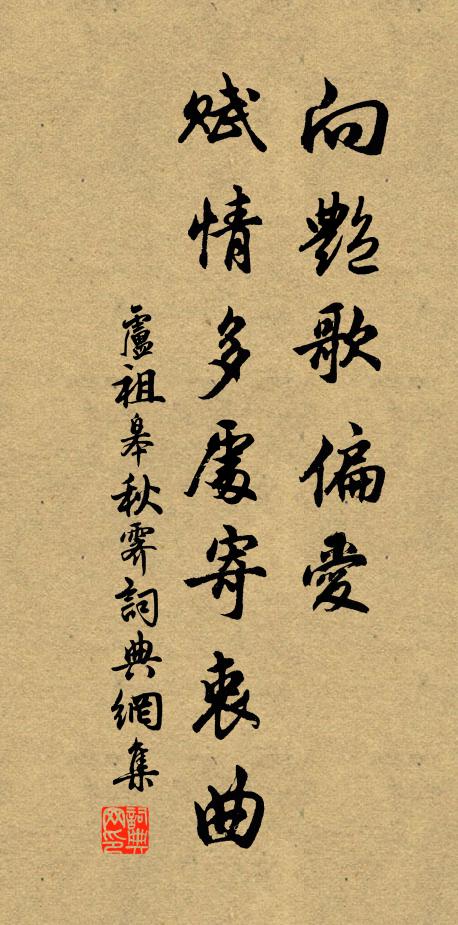 向艷歌偏愛
賦情多處寄衷曲
盧祖皋秋霽詞典網集
詞典網印